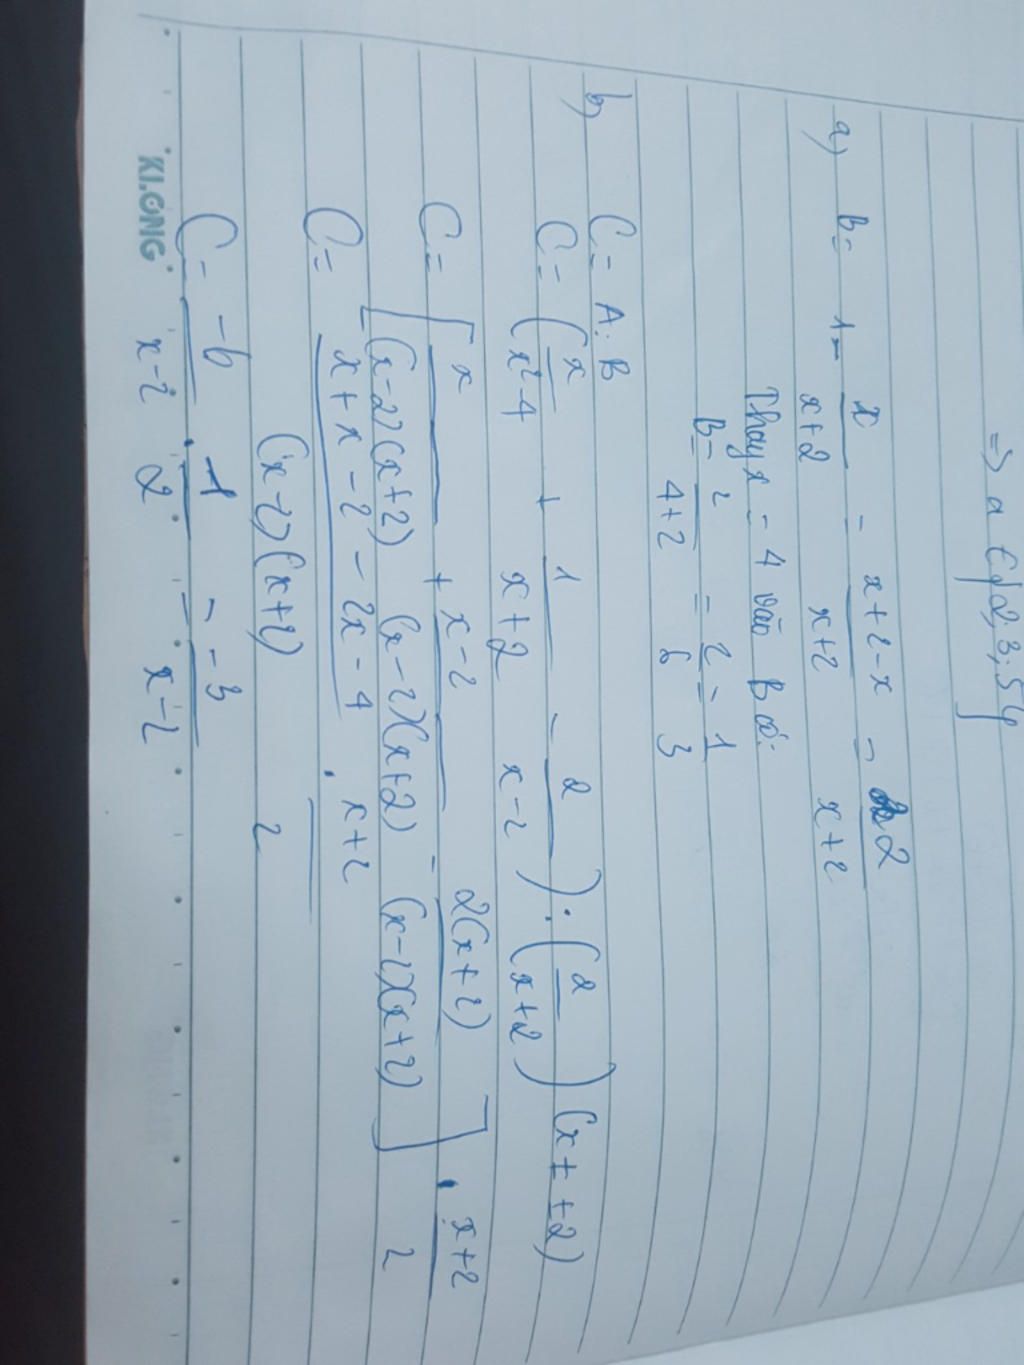 => a ∈ {2; 3; 5}
a) B = 1 - x/(x+2) = (x+2-x)/(x+2) = 2/(x+2)
Thay x = 4 vào B có:
B = 2/(4+2) = 2/6 = 1/3
b) C = A : B
C = (x/(x²-4) + 1/(x+2) - 2/(x-2)) : (2/(x+2)) (x ≠ ±2)
C = [x/((x-2)(x+2)) + (x-2)/((x-2)(x+2)) - 2(x+2)/((x-2)(x+2))] . (x+2)/2
C = (x+x-2-2x-4)/((x-2)(x+2)) . (x+2)/2
C = -6/(x-2) . 1/2 = -3/(x-2)
KLONG